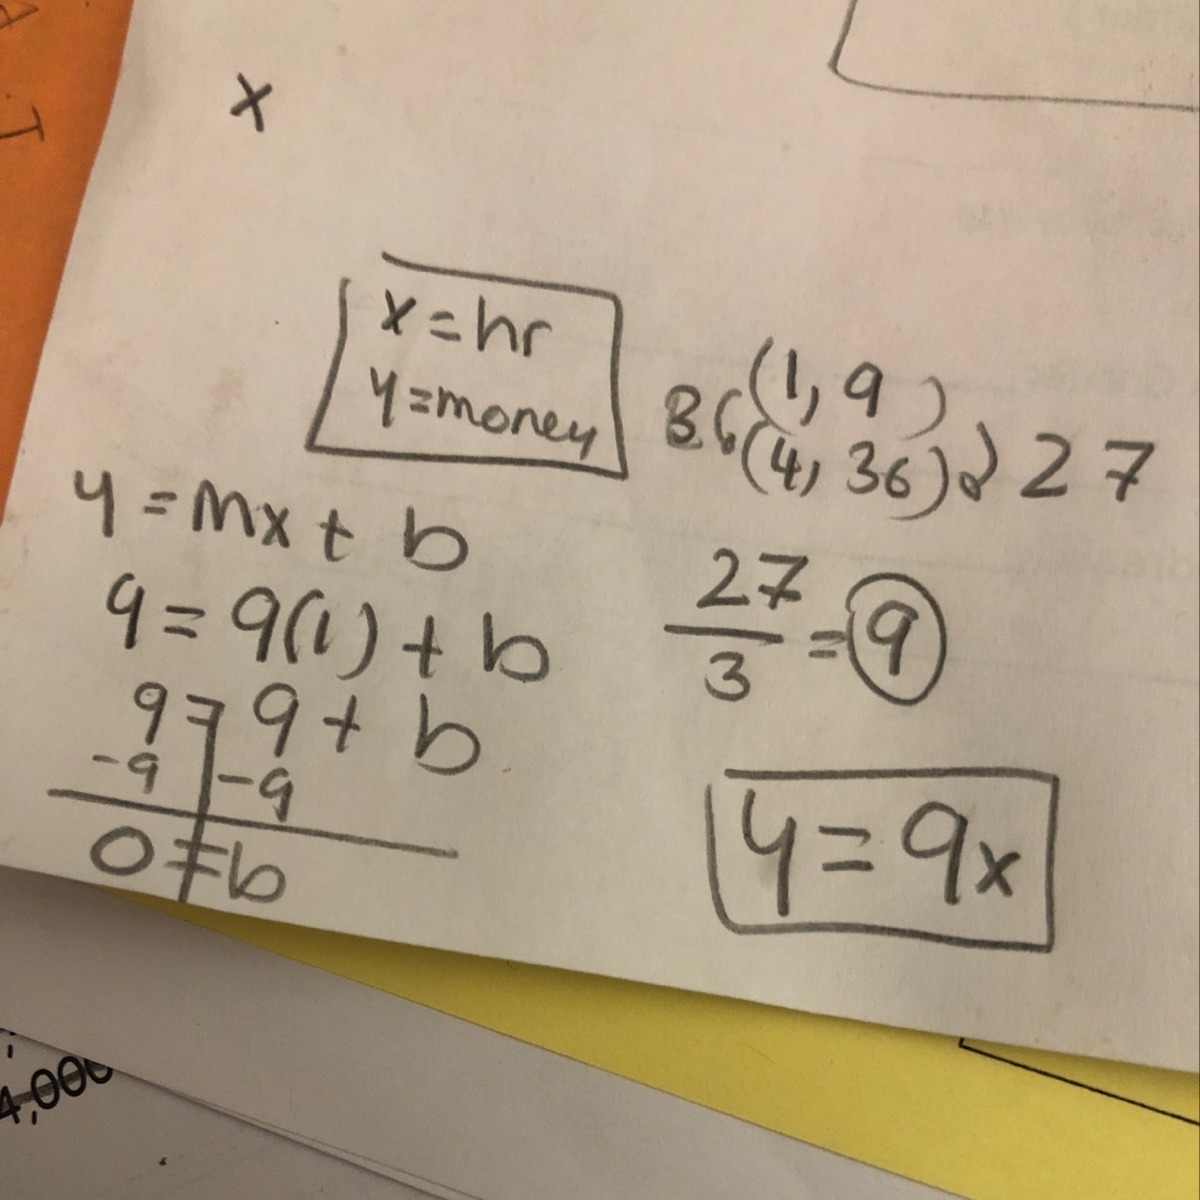 x
x=hr
y=money
3 (1, 9)
(4, 36) 27
y = mx + b
9 = 9(1) + b
9 = 9 + b
-9 -9
0 = b
27
3
= 9
y = 9x
4,000